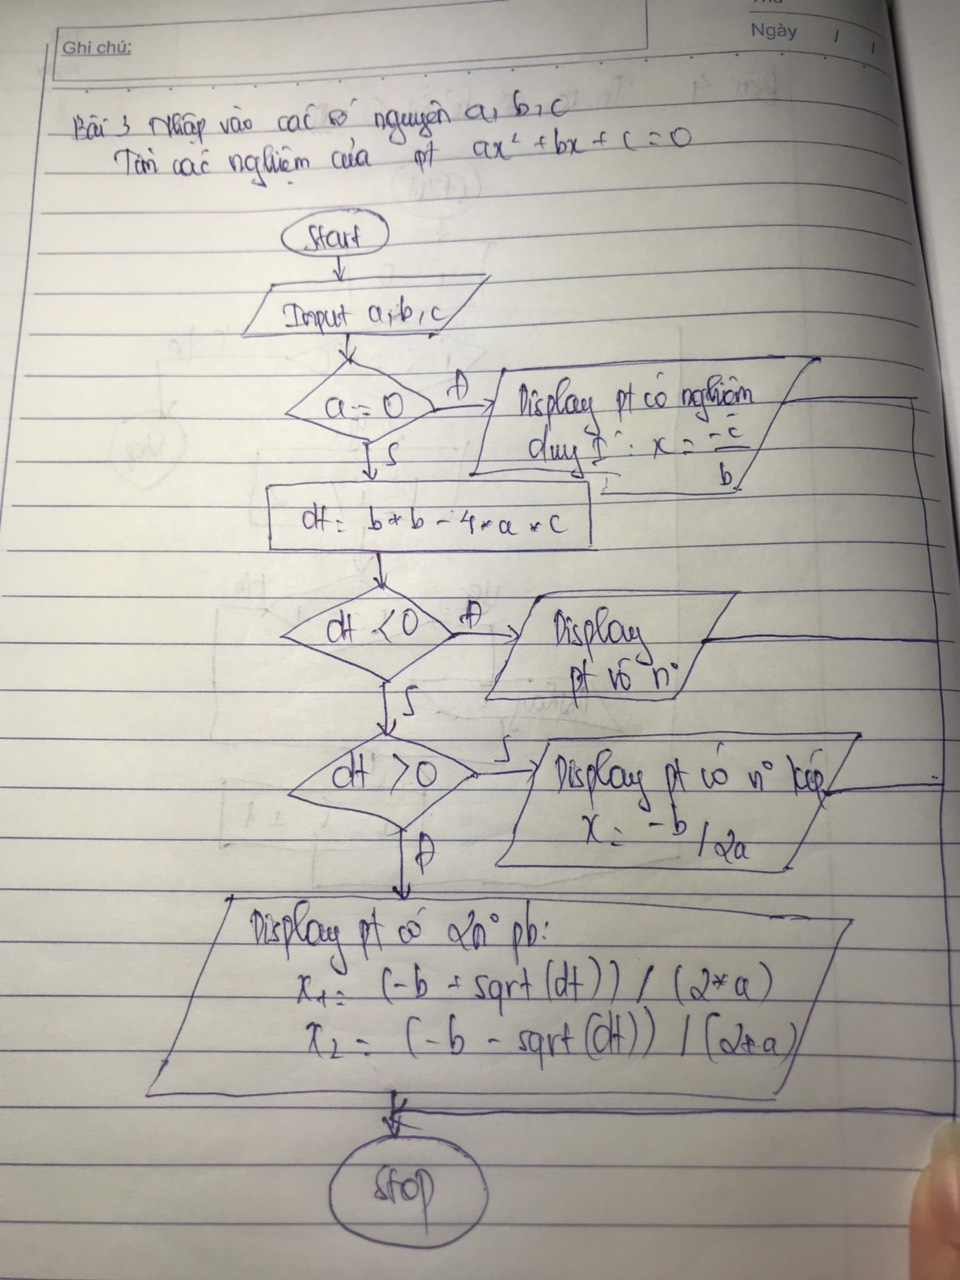 Thứ
Ghi chú:
Ngày / /
Bài 3 Nhập vào các số nguyên a, b, c
Tìm các nghiệm của pt ax² + bx + c = 0
Start
Input a, b, c
a == 0
Đ
Display pt có nghiệm
duy I : x = -c / b
S
dt = b * b - 4 * a * c
dt < 0
Đ
Display
pt vô n°
S
dt > 0
S
Display pt có n° kép
x = -b / 2a
Đ
Display pt có 2n° pb:
x1 = (-b + sqrt(dt)) / (2*a)
x2 = (-b - sqrt(dt)) / (2*a)
Stop